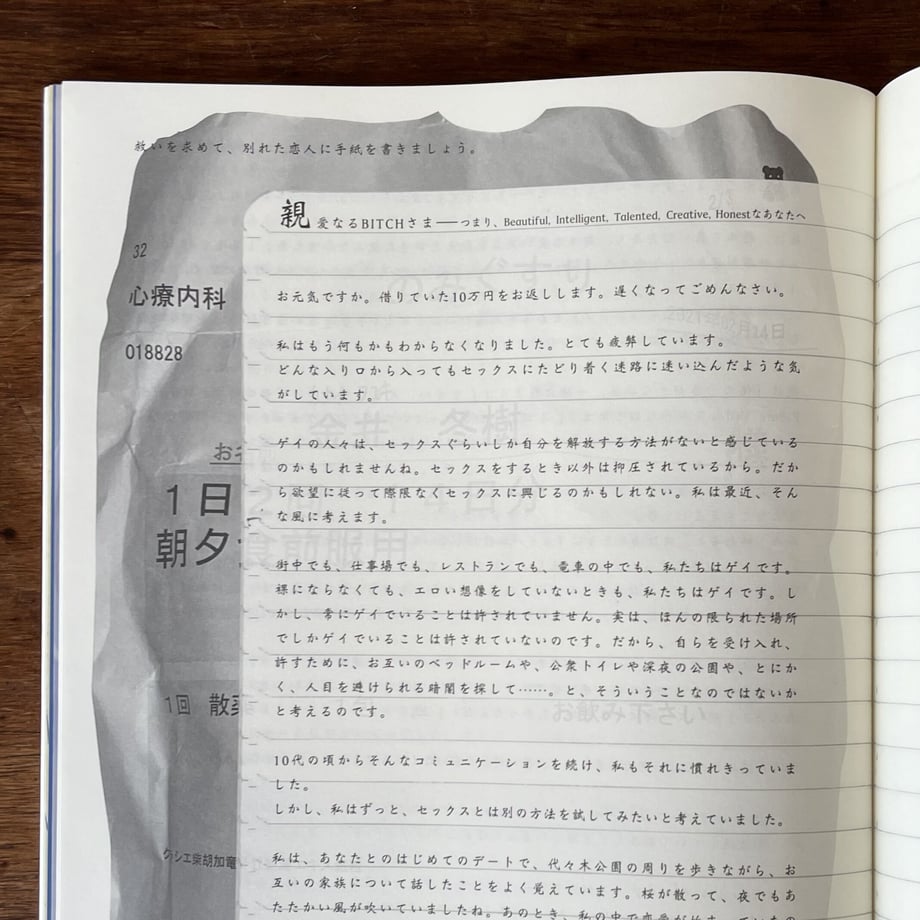 救いを求めて、別れた恋人に手紙を書きましょう。
親愛なるBITCHさま──つまり、Beautiful, Intelligent, Talented, Creative, Honestなあなたへ
32
心療内科
018828
お名
1日2 14日分
朝夕食前服用
1回 散薬
お飲み下さい
クラシエ柴胡加竜
のみぐすり
2/3
2021年02月14日
冬樹
お元気ですか。借りていた10万円をお返しします。遅くなってごめんなさい。
私はもう何もかもわからなくなりました。とても疲弊しています。
どんな入り口から入ってもセックスにたどり着く迷路に迷い込んだような気
がしています。
ゲイの人々は、セックスぐらいしか自分を解放する方法がないと感じている
のかもしれませんね。セックスをするとき以外は抑圧されているから。だか
ら欲望に従って際限なくセックスに興じるのかもしれない。私は最近、そん
な風に考えます。
街中でも、仕事場でも、レストランでも、電車の中でも、私たちはゲイです。
裸にならなくても、エロい想像をしていないときも、私たちはゲイです。し
かし、常にゲイでいることは許されていません。実は、ほんの限られた場所
でしかゲイでいることは許されていないのです。だから、自らを受け入れ、
許すために、お互いのベッドルームや、公衆トイレや深夜の公園や、とにか
く、人目を避けられる暗闇を探して……。と、そういうことなのではないか
と考えるのです。
10代の頃からそんなコミュニケーションを続け、私もそれに慣れきっていま
した。
しかし、私はずっと、セックスとは別の方法を試してみたいと考えていました。
私は、あなたとのはじめてのデートで、代々木公園の周りを歩きながら、お
互いの家族について話したことをよく覚えています。桜が散って、夜でもあ
たたかい風が吹いていましたね。あのとき、私の中で恋愛が